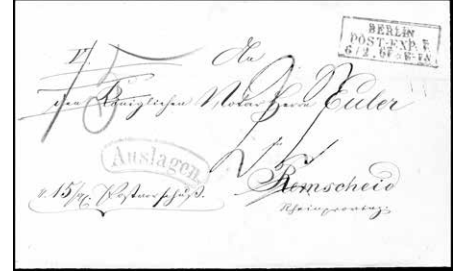 BERLIN
POST-EXP. R
6/2. 67 5-6 N.
An
den Königlichen Notar Herrn Euler
Auslagen.
15 Postvorschuß.
Remscheid
Rheinprovinz.